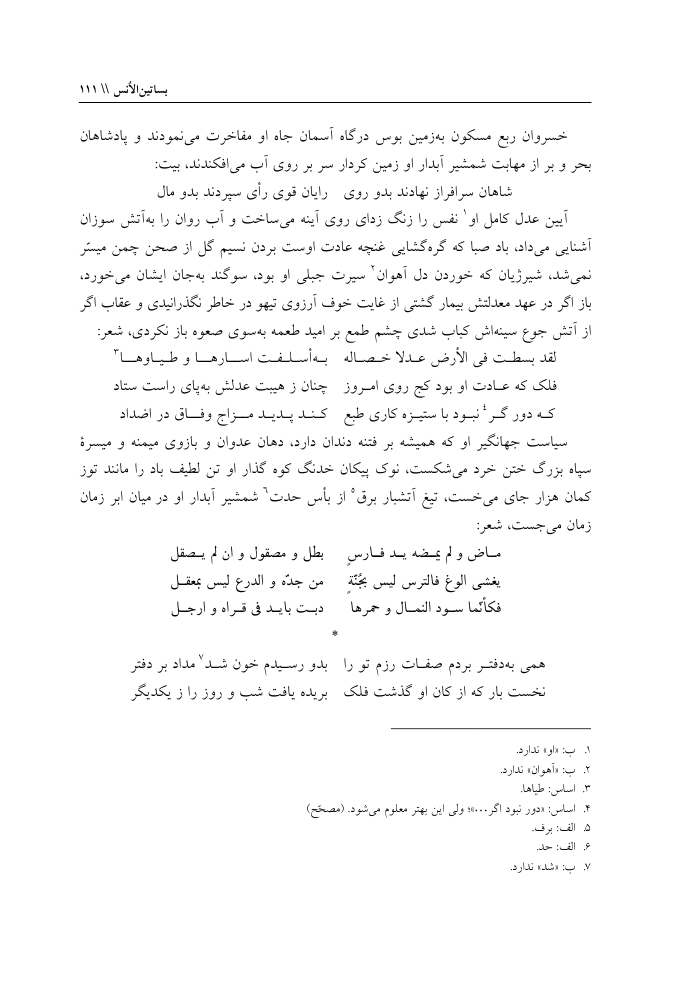 بساتین‌الأنس \\ ۱۱۱
خسروان ربع مسکون به‌زمین بوس درگاه آسمان جاه او مفاخرت می‌نمودند و پادشاهان
بحر و بر از مهابت شمشیر آبدار او زمین کردار سر بر روی آب می‌افکندند، بیت:
شاهان سرافراز نهادند بدو روی    رایان قوی رأی سپردند بدو مال
آیین عدل کامل او۱ نفس را زنگ زدای روی آینه می‌ساخت و آب روان را به‌آتش سوزان
آشنایی می‌داد، باد صبا که گره‌گشایی غنچه عادت اوست بردن نسیم گل از صحن چمن میسّر
نمی‌شد، شیرژیان که خوردن دل آهوان۲ سیرت جبلی او بود، سوگند به‌جان ایشان می‌خورد،
باز اگر در عهد معدلتش بیمار گشتی از غایت خوف آرزوی تیهو در خاطر نگذرانیدی و عقاب اگر
از آتش جوع سینه‌اش کباب شدی چشم طمع بر امید طعمه به‌سوی صعوه باز نکردی، شعر:
لقد بسطت فی الأرض عدلا خصاله    به‌أسلفت اسارها و طیاوها۳
فلک که عادت او بود کج روی امروز    چنان ز هیبت عدلش به‌پای راست ستاد
که دور گر۴ نبود با ستیزه کاری طبع    کند پدید مزاج وفاق در اضداد
سیاست جهانگیر او که همیشه بر فتنه دندان دارد، دهان عدوان و بازوی میمنه و میسرۀ
سپاه بزرگ ختن خرد می‌شکست، نوک پیکان خدنگ کوه گذار او تن لطیف باد را مانند توز
کمان هزار جای می‌خست، تیغ آتشبار برق۵ از بأس حدت۶ شمشیر آبدار او در میان ابر زمان
زمان می‌جست، شعر:
ماض و لم یمضه ید فارسٍ    بطل و مصقول و ان لم یصقل
یغشی الوغ فالترس لیس بجُنّةٍ    من جدّه و الدرع لیس بمعقل
فکأنّما سود النمال و حمرها    دبت باید فی قراه و ارجل
*
همی به‌دفتر بردم صفات رزم تو را    بدو رسیدم خون شد۷ مداد بر دفتر
نخست بار که از کان او گذشت فلک    بریده یافت شب و روز را ز یکدیگر
۱. ب: «او» ندارد.
۲. ب: «آهوان» ندارد.
۳. اساس: طیاها.
۴. اساس: «دور نبود اگر...»؛ ولی این بهتر معلوم می‌شود. (مصحّح)
۵. الف: برف.
۶. الف: حد.
۷. ب: «شد» ندارد.